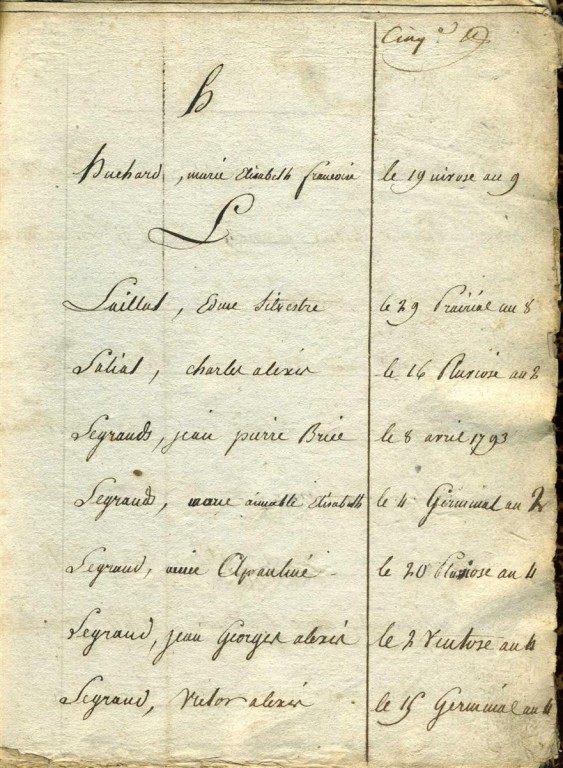 Cinq.e
h
huchard, marie Elisabeth francoise le 19 nivose au 9
L
Laillat, Edme Silvestre le 29 Prairial au 8
Laliat, charles alexis le 16 Pluviose au 2
Legrands, jean pierre Brice le 8 avril 1793
Legrands, marie aimable Elisabeth le 4 Germinal au 2
Legrand, Apauline le 20 Pluviose au 4
Legrand, jean Georges alexis le 2 Ventose au 4
Legrand, Victor alexis le 15 Germinal au 4